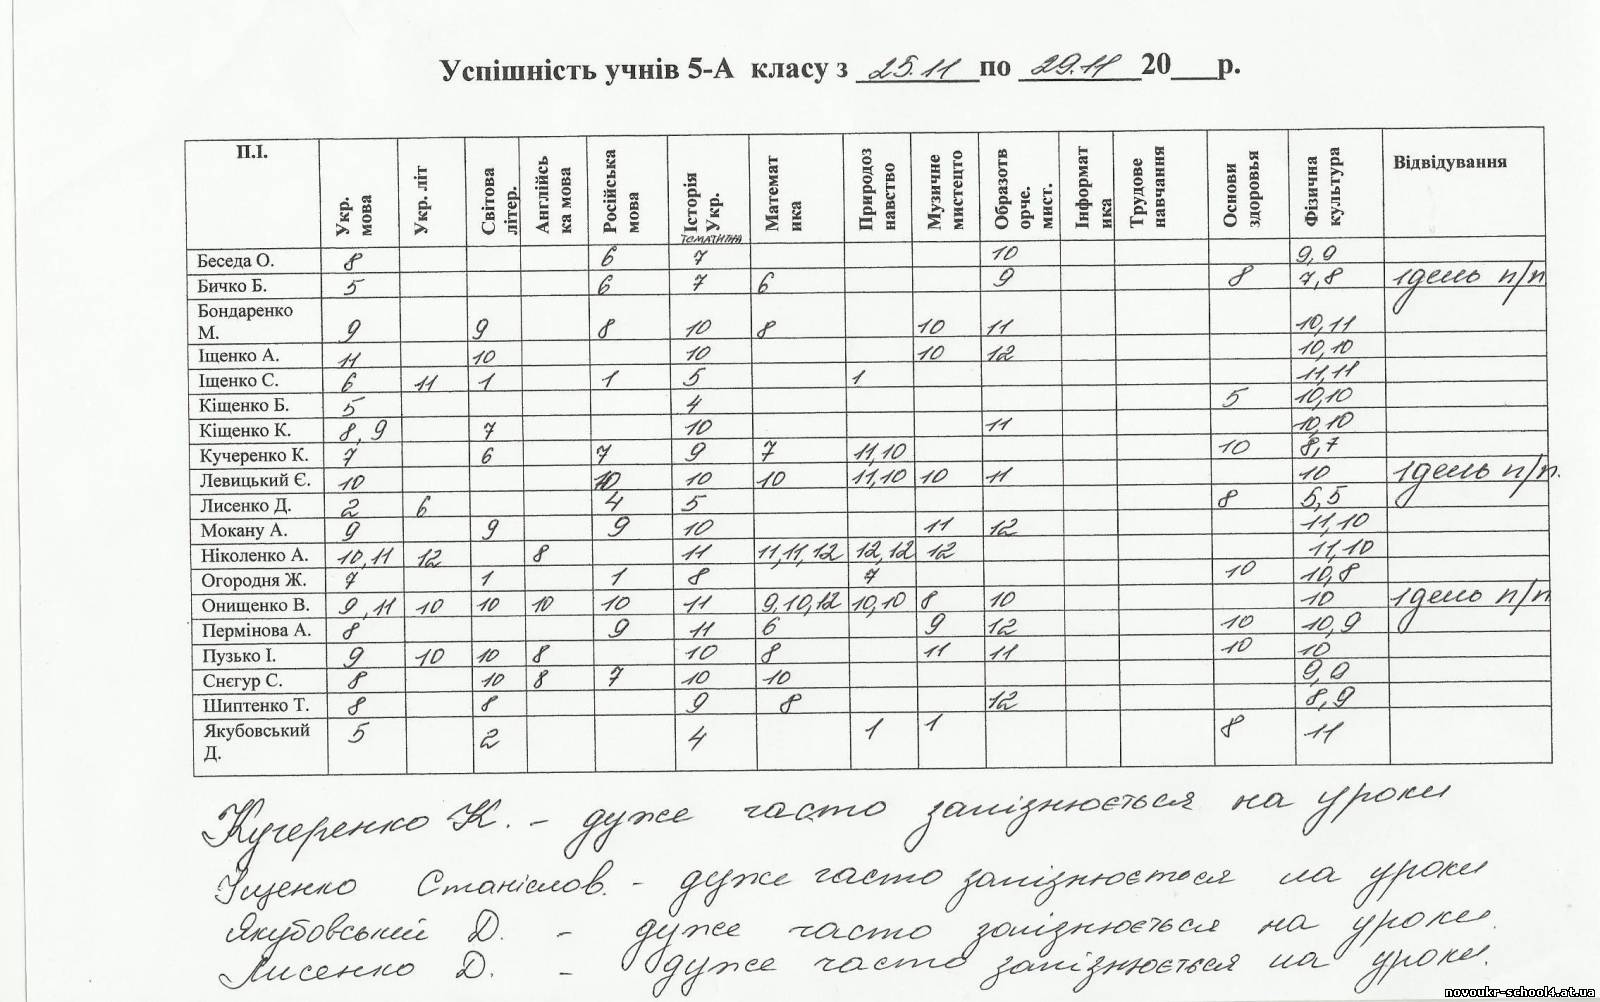 Успішність учнів 5-А класу з 25.11 по 29.11 20___р.
П.І. Укр. мова Укр. літ Світова літер. Англійсь ка мова Російська мова Історія Укр. тематична Математ ика Природоз навство Музичне мистецто Образотв орче. мист. Інформат ика Трудове навчання Основи здоровья Фізична культура Відвідування
Беседа О. 8 6 7 10 9,9
Бичко Б. 5 6 7 6 9 8 7,8 1день п/п
Бондаренко М. 9 9 8 10 8 10 11 10,11
Іщенко А. 11 10 10 10 12 10,10
Іщенко С. 6 11 1 1 5 1 11,11
Кіщенко Б. 5 4 5 10,10
Кіщенко К. 8,9 7 10 11 10,10
Кучеренко К. 7 6 7 9 7 11,10 10 8,7
Левицький Є. 10 10 10 10 11,10 10 11 10 1день п/п.
Лисенко Д. 2 6 4 5 8 5,5
Мокану А. 9 9 9 10 11 12 11,10
Ніколенко А. 10,11 12 8 11 11,11,12 12,12 12 11,10
Огородня Ж. 7 1 1 8 7 10 10,8
Онищенко В. 9,11 10 10 10 10 11 9,10,12 10,10 8 10 10 1день п/п
Пермінова А. 8 9 11 6 9 12 10 10,9
Пузько І. 9 10 10 8 10 8 11 11 10 10
Снєгур С. 8 10 8 7 10 10 9,9
Шиптенко Т. 8 8 9 8 12 8,9
Якубовський Д. 5 2 4 1 1 8 11
Кучеренко К. - дуже часто запізнюється на уроки
Іщенко Станіслов. - дуже часто запізнюється на уроки
Якубовський Д. - дуже часто запізнюється на уроки.
Лисенко Д. - дуже часто запізнюється на уроки.
novoukr-school4.at.ua